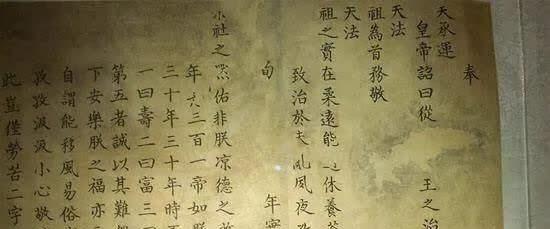 奉
天承運
皇帝詔曰從 王之治
天法
祖為首務敬
天法
祖之實在柔遠能 休養
致治於 夙夜
年
旬
宗社之 佑非朕涼德之所
年 三百一帝如朕
三十年三十年時
一曰壽二曰富三曰
第五者誠以其難
下安樂朕之福亦
自謂能移風易俗
孜孜汲汲小心敬
此豈僅勞苦二字